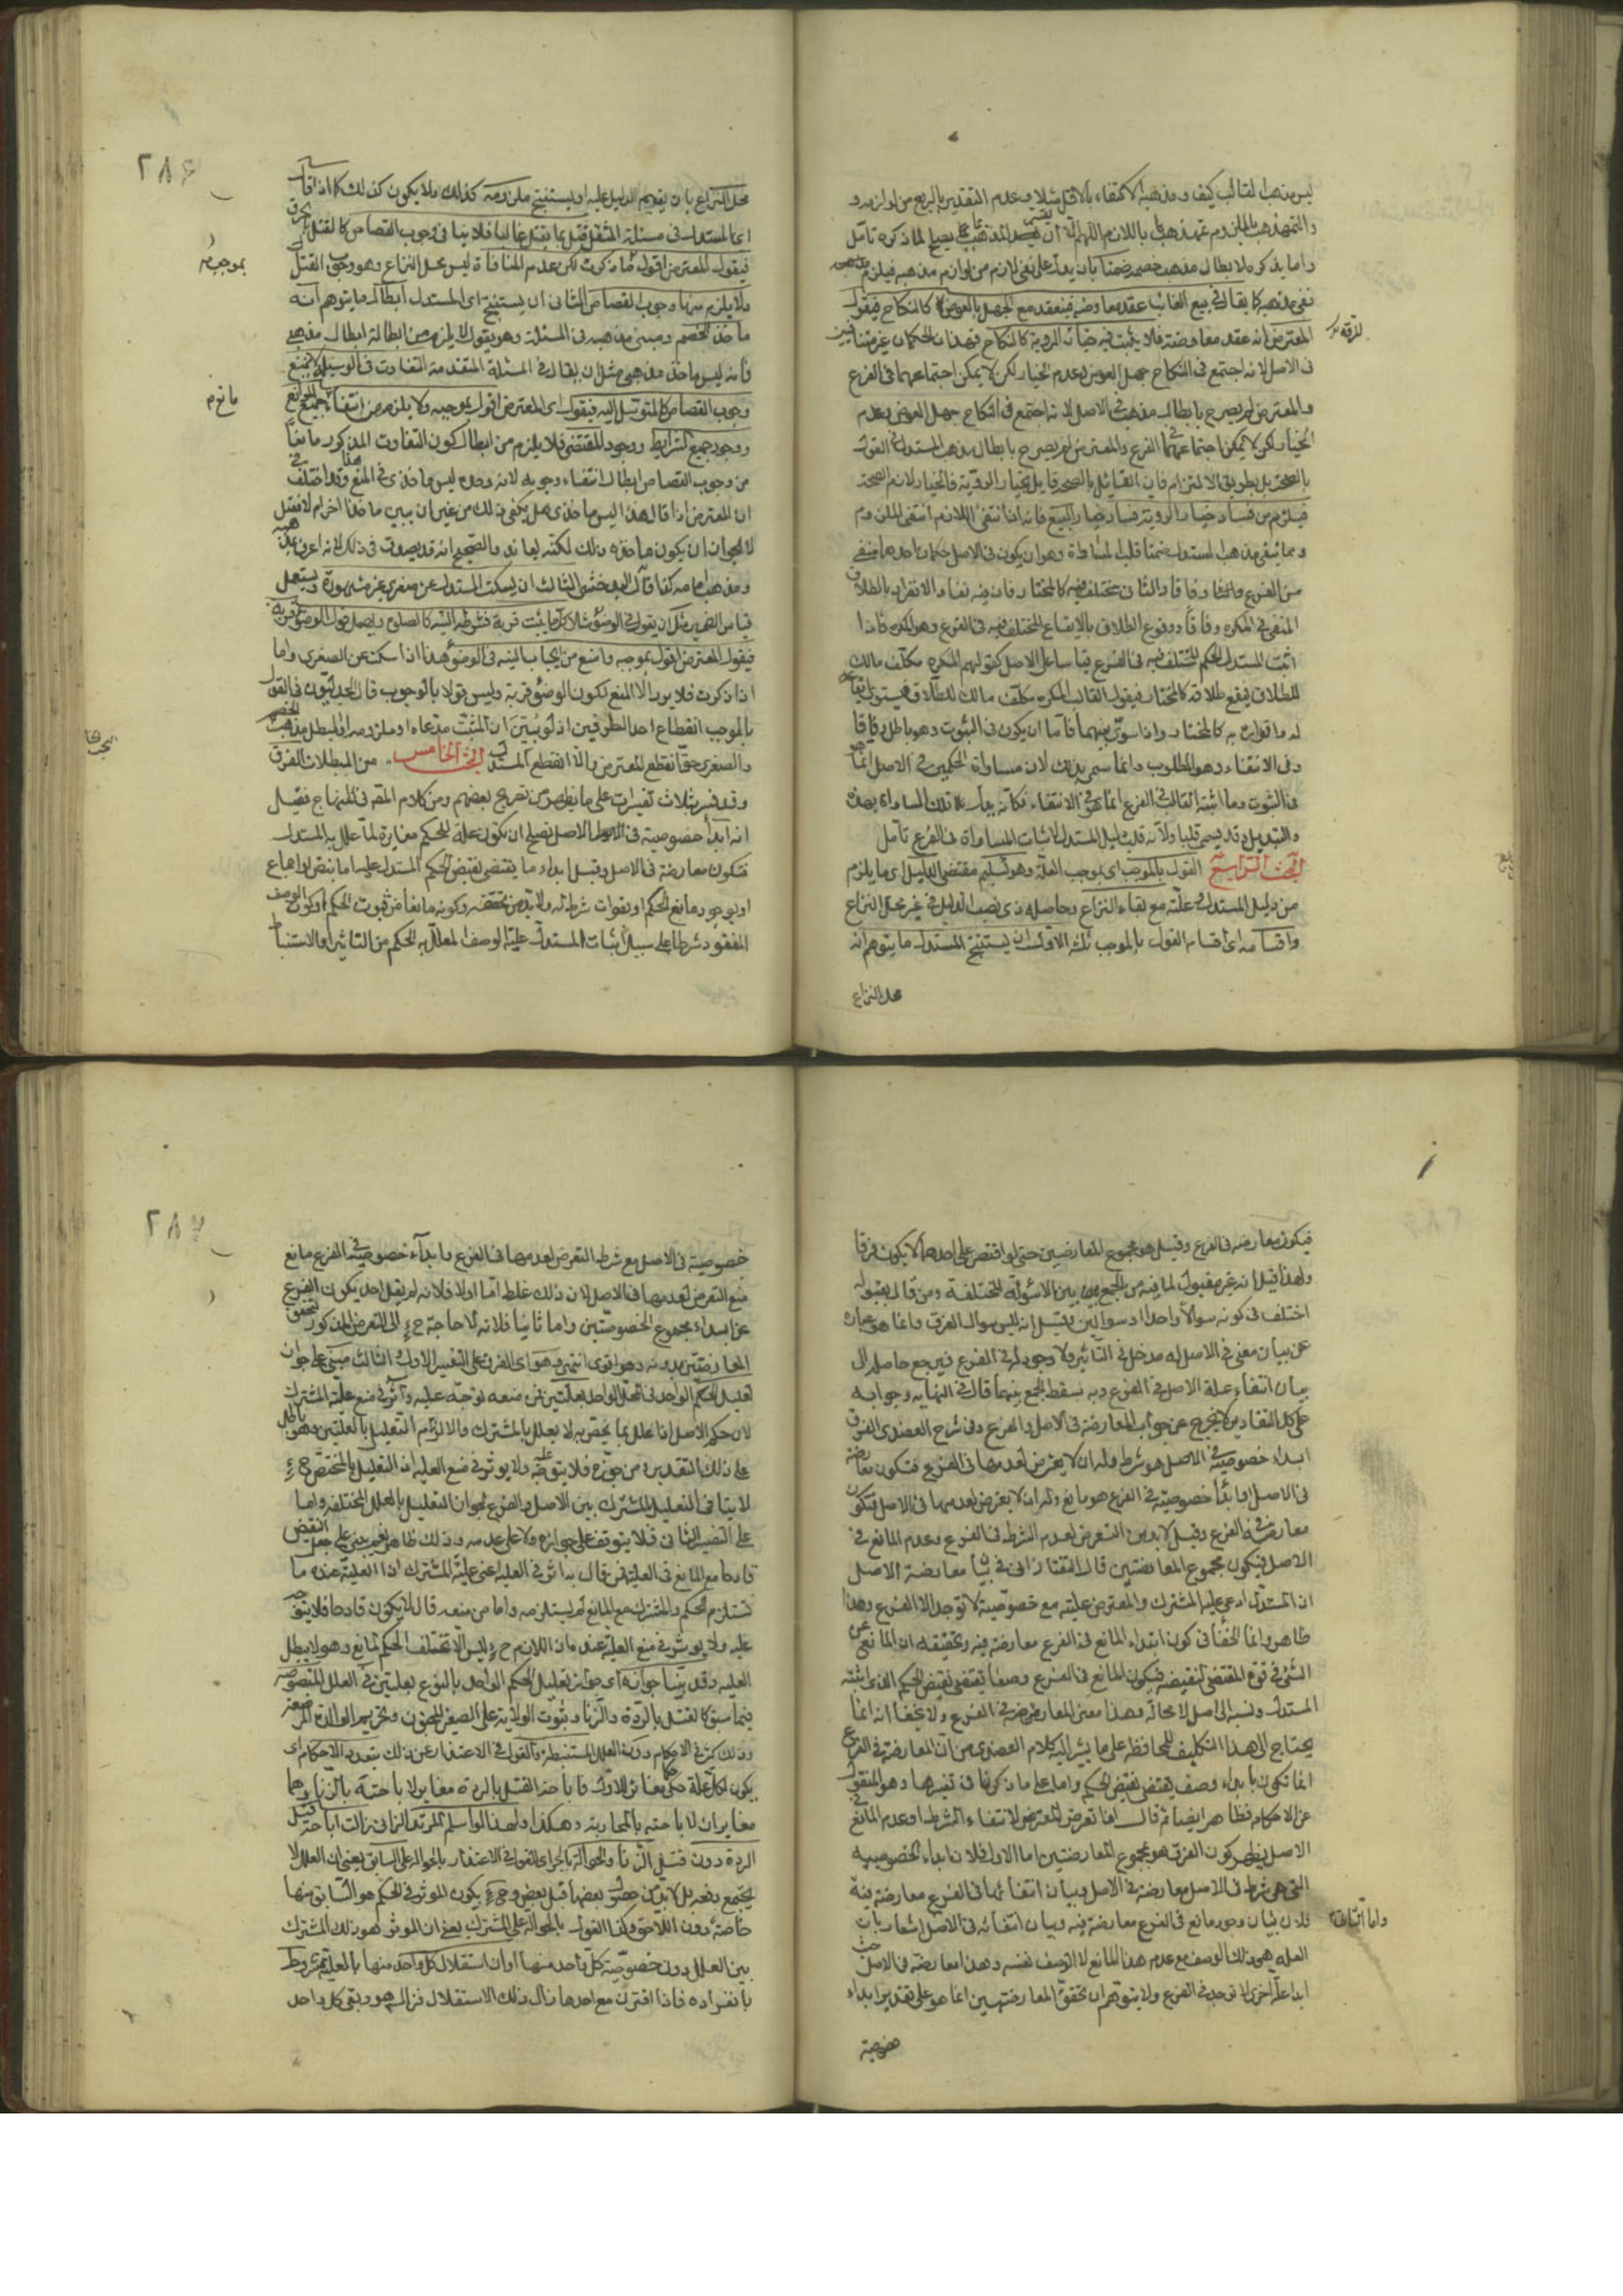 ليس مذهبا لقالب كيف ومذهبه الاكتفاء بالاقل مثلا وعدم التقدير بالربع من لوازمه و
واما يذكره لابطال مذهب خصمه ضمنا بان يدل على نفى لازم من لوازم مذهبه فيلزم
نفى مذهبه كما يقال فى بيع الغائب عقد معاوضة فينعقد مع الجهل بالعوض كالنكاح فيقول
المعترض انه عقد معاوضة فلا يثبت فيه خيار الروية كالنكاح فهذان الحكمان غير متنافيين
فى الاصل لانه اجتمع فى النكاح جهل العوض وعدم الخيار لكن لا يمكن اجتماعهما فى الفرع
والمعترض لم يصرح بابطال مذهب فى الاصل لانه اجتمع فى النكاح جهل العوض وعدم
الخيار لكن لا يمكن اجتماعهما فى الفرع والمعترض لم يصرح بابطال مذهب المستدل فى القول
بالصحة بل بطريق الالتزام فان القائل بالصحة قايل بخيار الروية فالخيار لازم الصحة
فيلزم من فساد خيار الروية فساد البيع فانه اذا انتفى اللازم انتفى الملزوم
من الفرع وفاقا والثانى مختلف فيه كالمختار
المنفى فى المكره وفاقا ووقوع الطلاق بالايقاع المختلف فيه فى الفرع وهو المكره فاذا
اثبت المستدل الحكم المختلف فيه فى الفرع قياسا على الاصل كقولهم المكره مكلف مالك
للطلاق فيقع طلاقه كالمختار فيقول القالب المكره مكلف مالك للطلاق فيستوى ايقاعه
له واقراره به كالمختار واذا سوى بينهما فاما ان يكون فى الثبوت وهو باطل وفاقا
وفى الانتفاء وهو المطلوب وانما سمى بذلك لان مساواة الحكمين فى الاصل انما هو
فى الثبوت وما اثبته القالب فى الفرع انما هو فى الانتفاء
البحث الرابع القول بالموجب اى بموجب العلة وهو تسليم مقتضى الدليل اى ما يلزم
من دليل المستدل وعلته مع بقاء النزاع وحاصله نصب الدليل فى غير محل النزاع
واقسامه اى اقسام القول بالموجب ثلثة الاول ان يستنتج المستدل ما يتوهم انه
محل النزاع
٢٨٦
محل النزاع بان يقيم الدليل عليه او يستنتج ملزومه كذلك ولا يكون كذلك كما اذا قال
اى المستدل فى مسئلة المثقل قتل بما يقتل غالبا فلا ينافى وجوب القصاص كالقتل بالحرق
فيقول المعترض اقول بما ذكرت لكن عدم المنافاة ليس محل النزاع وهو وجوب القتل
بموجب
ولا يلزم منها وجوب القصاص الثانى ان يستنتج اى المستدل ابطال ما يتوهم انه
ماخذ الخصم ومبنى مذهبه فى المسئلة وهو يقول لا يلزم من ابطاله ابطال مذهبى
فانه ليس ماخذ مذهبى مثل ان يقال فى المسئلة المتقدمة التفاوت فى الوسيلة لا يمنع
وجوب القصاص كالمتوسل اليه فيقول اى المعترض اقول بموجبه ولا يلزم من انتفاء جميع الموانع
ووجود جميع الشرايط ووجود المقتضى فلا يلزم من ابطال كون التفاوت المذكور مانعا
من وجوب القصاص ابطال انتفاء وجوبه لانه وحده ليس ماخذى فى المنع وقد اختلف فى
ان المعترض اذا قال هذا ليس ماخذى هل يكفى ذلك من غير ان يبين ماخذا اخر ام لا
لجواز ان يكون ماخذه ذلك لكنه يعاند والصحيح انه قد يصدق فى ذلك لانه اعرف بمذهبه
الثالث ان يسكت المستدل عن صغرى غير مشهورة ويستعمل
فيقول المعترض اقول بموجبه وامنع من ايجاب النية فى الوضوء هذا اذا سكت عن الصغرى واما
اذا ذكرت فلا يرد الا المنع لكون الوضوء قربة وليس قولا بالموجب قال الجدليون فى القول
بالموجب انقطاع احد الطرفين
والصغرى حق انقطع المعترض والا انقطع المستدل البحث الخامس من المبطلات الفرق
وقد فسر بثلاث تفسيرات على ما يظهر من تصريح بعضهم ومن كلام المصنف فى المنهاج فقيل
انه ابدأ خصوصية فى الاصل تصلح ان تكون علة للحكم مغايرة لما علل به المستدل
فتكون معارضة فى الاصل وقيل ابداء ما يقتضى نقيض الحكم المستدل عليه اما بنص او اجماع
او بوجود مانع الحكم او بفوات شرطه ولا بد من تحققه وكونه مانعا من ثبوت الحكم او كون الوصف
المفقود شرطا على سبيل اثبات المستدل علية الوصف المعلل به الحكم من التاثير او الاستنباط
فيكون معارضة فى الفرع وقيل هو مجموع المعارضين حتى لو اقتصر على احدهما لا يكون فرقا
ولهذا قيل انه غير مقبول لما فيه من الجمع بين الاسؤلة المختلفة ومن قال بقبوله
اختلف فى كونه سوالا واحدا او سوالين فقيل انه ليس سوال الفرق وانما هو عبارة
عن بيان معنى فى الاصل له مدخل فى التاثير ولا وجود له فى الفرع فيرجع حاصله الى
بيان انتفاء علة الاصل فى الفرع وبه يسقط الجمع بينهما قال فى النهاية وجوابه
على كل التقادير لا يخرج عن جواب المعارضة فى الاصل والفرع وفى شرح العضدى الفرق
ابداء خصوصية فى الاصل هو شرط وله ان لا يتعرض لعدمها فى الفرع فتكون معارضة
فى الاصل او ابدأ خصوصية فى الفرع هو مانع وله ان لا يتعرض لعدمها فى الاصل فتكون
معارضة فى الفرع وقيل لا بد من التعرض لعدم الشرط فى الفرع وعدم المانع فى
الاصل فيكون مجموع المعارضتين قال التفتازانى معارضة الاصل
ان المستدل ادعى علية المشترك والمعترض عليته مع خصوصية لا توجد الا الفرع وهذا
ظاهر وانما الخفأ فى كون ابداء المانع فى الفرع معارضة فيه وتحقيقه ان المانع عن
الشئ فى قوة المقتضى لنقيضه فيكون المانع فى الفرع وصفا يقتضى نقيض الحكم الذى اثبته
المستدل ونسبه الى اصل لا محالة وهذا معنى المعارضة فى الفرع ولا يخفأ انه انما
يحتاج الى هذا التكليف للمحافظة على ما يشير اليه كلام العضدى من ان المعارضة فى الفرع
انما تكون بابداء وصف يقتضى نقيض الحكم واما على ما ذكرنا فى تفسيرها وهو المنقول
عن الاحكام فظاهر ايضا ثم قال اذا تعرض المعترض لانتفاء الشرط او عدم المانع فى
الاصل يظهر كون الفرق هو مجموع المعارضتين اما الاول فلان ابداء الخصوصية
التى هى شرط فى الاصل معارضة فى الاصل وبيان انتفائها فى الفرع معارضة فيه
واما الثانى فلان بيان وجود مانع فى الفرع معارضة فيه وبيان انتفائه فى الاصل اشعار بان
العلة هى ذلك الوصف مع عدم هذا المانع لا الوصف نفسه وهذا معارضة فى الاصل حيث
ابدا علة اخرى لا توجد فى الفرع ولا يتوهم ان تحقق المعارضتين انما هو على تقدير ابداء
خصوصية
٢٨٧
خصوصية فى الاصل مع شرط التعرض لعدمها فى الفرع وابدآء خصوصية فى الفرع مانع
مع التعرض لعدمها فى الاصل لان ذلك غلط اما اولا فلانه لم يقل احد بكون الفرع
عن ابداء مجموع الخصوصيتين واما ثانيا فلانه لا حاجة ح الى التعرض المذكور لتحقق
المعارضتين بدونه وهو اقوى انتهى وهو اى الفرق على التفسير الاول والثالث مبنى على جواز
تعليل الحكم الواحد فى المحل الواحد بعلتين فمن منعه توجه عليه واثر فى منع علية المشترك
لان حكم الاصل اذا علل بما يختص به لا يعلل بالمشترك والا لزم التعليل بالعلتين وهو باطل
على ذلك التقدير ومن جوزه فلا يتوجه عليه ولا يوثر فى منع العلية اذ التعليل بالمختص ح
لا ينافى التعليل بالمشترك بين الاصل والفرع لجواز التعليل بالعلل المختلفة واما
على التفسير الثانى فلا يتوقف على جوازه ولا على عدمه وذلك ظاهر
قادحا مع المانع فى العلية فمن قال به اثر فى العلية اعنى علية المشترك اذ العلية عنده ما
تستلزم الحكم والمشترك مع المانع لم يستلزمه واما من منعه قال لا يكون قادحا فلا يتوجه
عليه ولا يوثر فى منع العلية عنده فان اللازم ح ليس الا تخلف الحكم لمانع وهو لا يبطل
العلية وقد بينا جوازه اى جواز تعليل الحكم الواحد بالنوع بعلتين فى العلل المنصوصة
فيما سبق كالقتل بالردة والزنا وثبوت الولاية على الصغير المجنون وتحريم الوالدة المرضعة
وذلك كثير فى الاحكام دون العلل المستنبطة والقول فى الاعتذار عن ذلك بتعدد الاحكام اى
يكون لكل علة حكم مغاير للاول فاباحة القتل بالردة مغاير لاباحته بالزنا وهما
مغايران لاباحته بالمحاربة وهكذا ولهذا لو اسلم المرتد الزانى زالت اباحة قتل
الردة دون قتل الزنا والحوالة بالجر اى القول فى الاعتذار بالحوالة على السابق يعنى ان العلل لا
يجتمع دفعة بل لا بد من حصول بعضها قبل بعض وح يكون الموثر فى الحكم هو السابق منها
خاصة دون اللاحق وكذا القول بالحوالة على المشترك يعنى ان الموثر هو ذلك المشترك
بين العلل دون خصوصية كل واحد منها او ان استقلال كل واحد منها بالعلية مشروط
بانفراده فاذا اقترن مع احدها زال ذلك الاستقلال فزال هو وبقى كل واحد